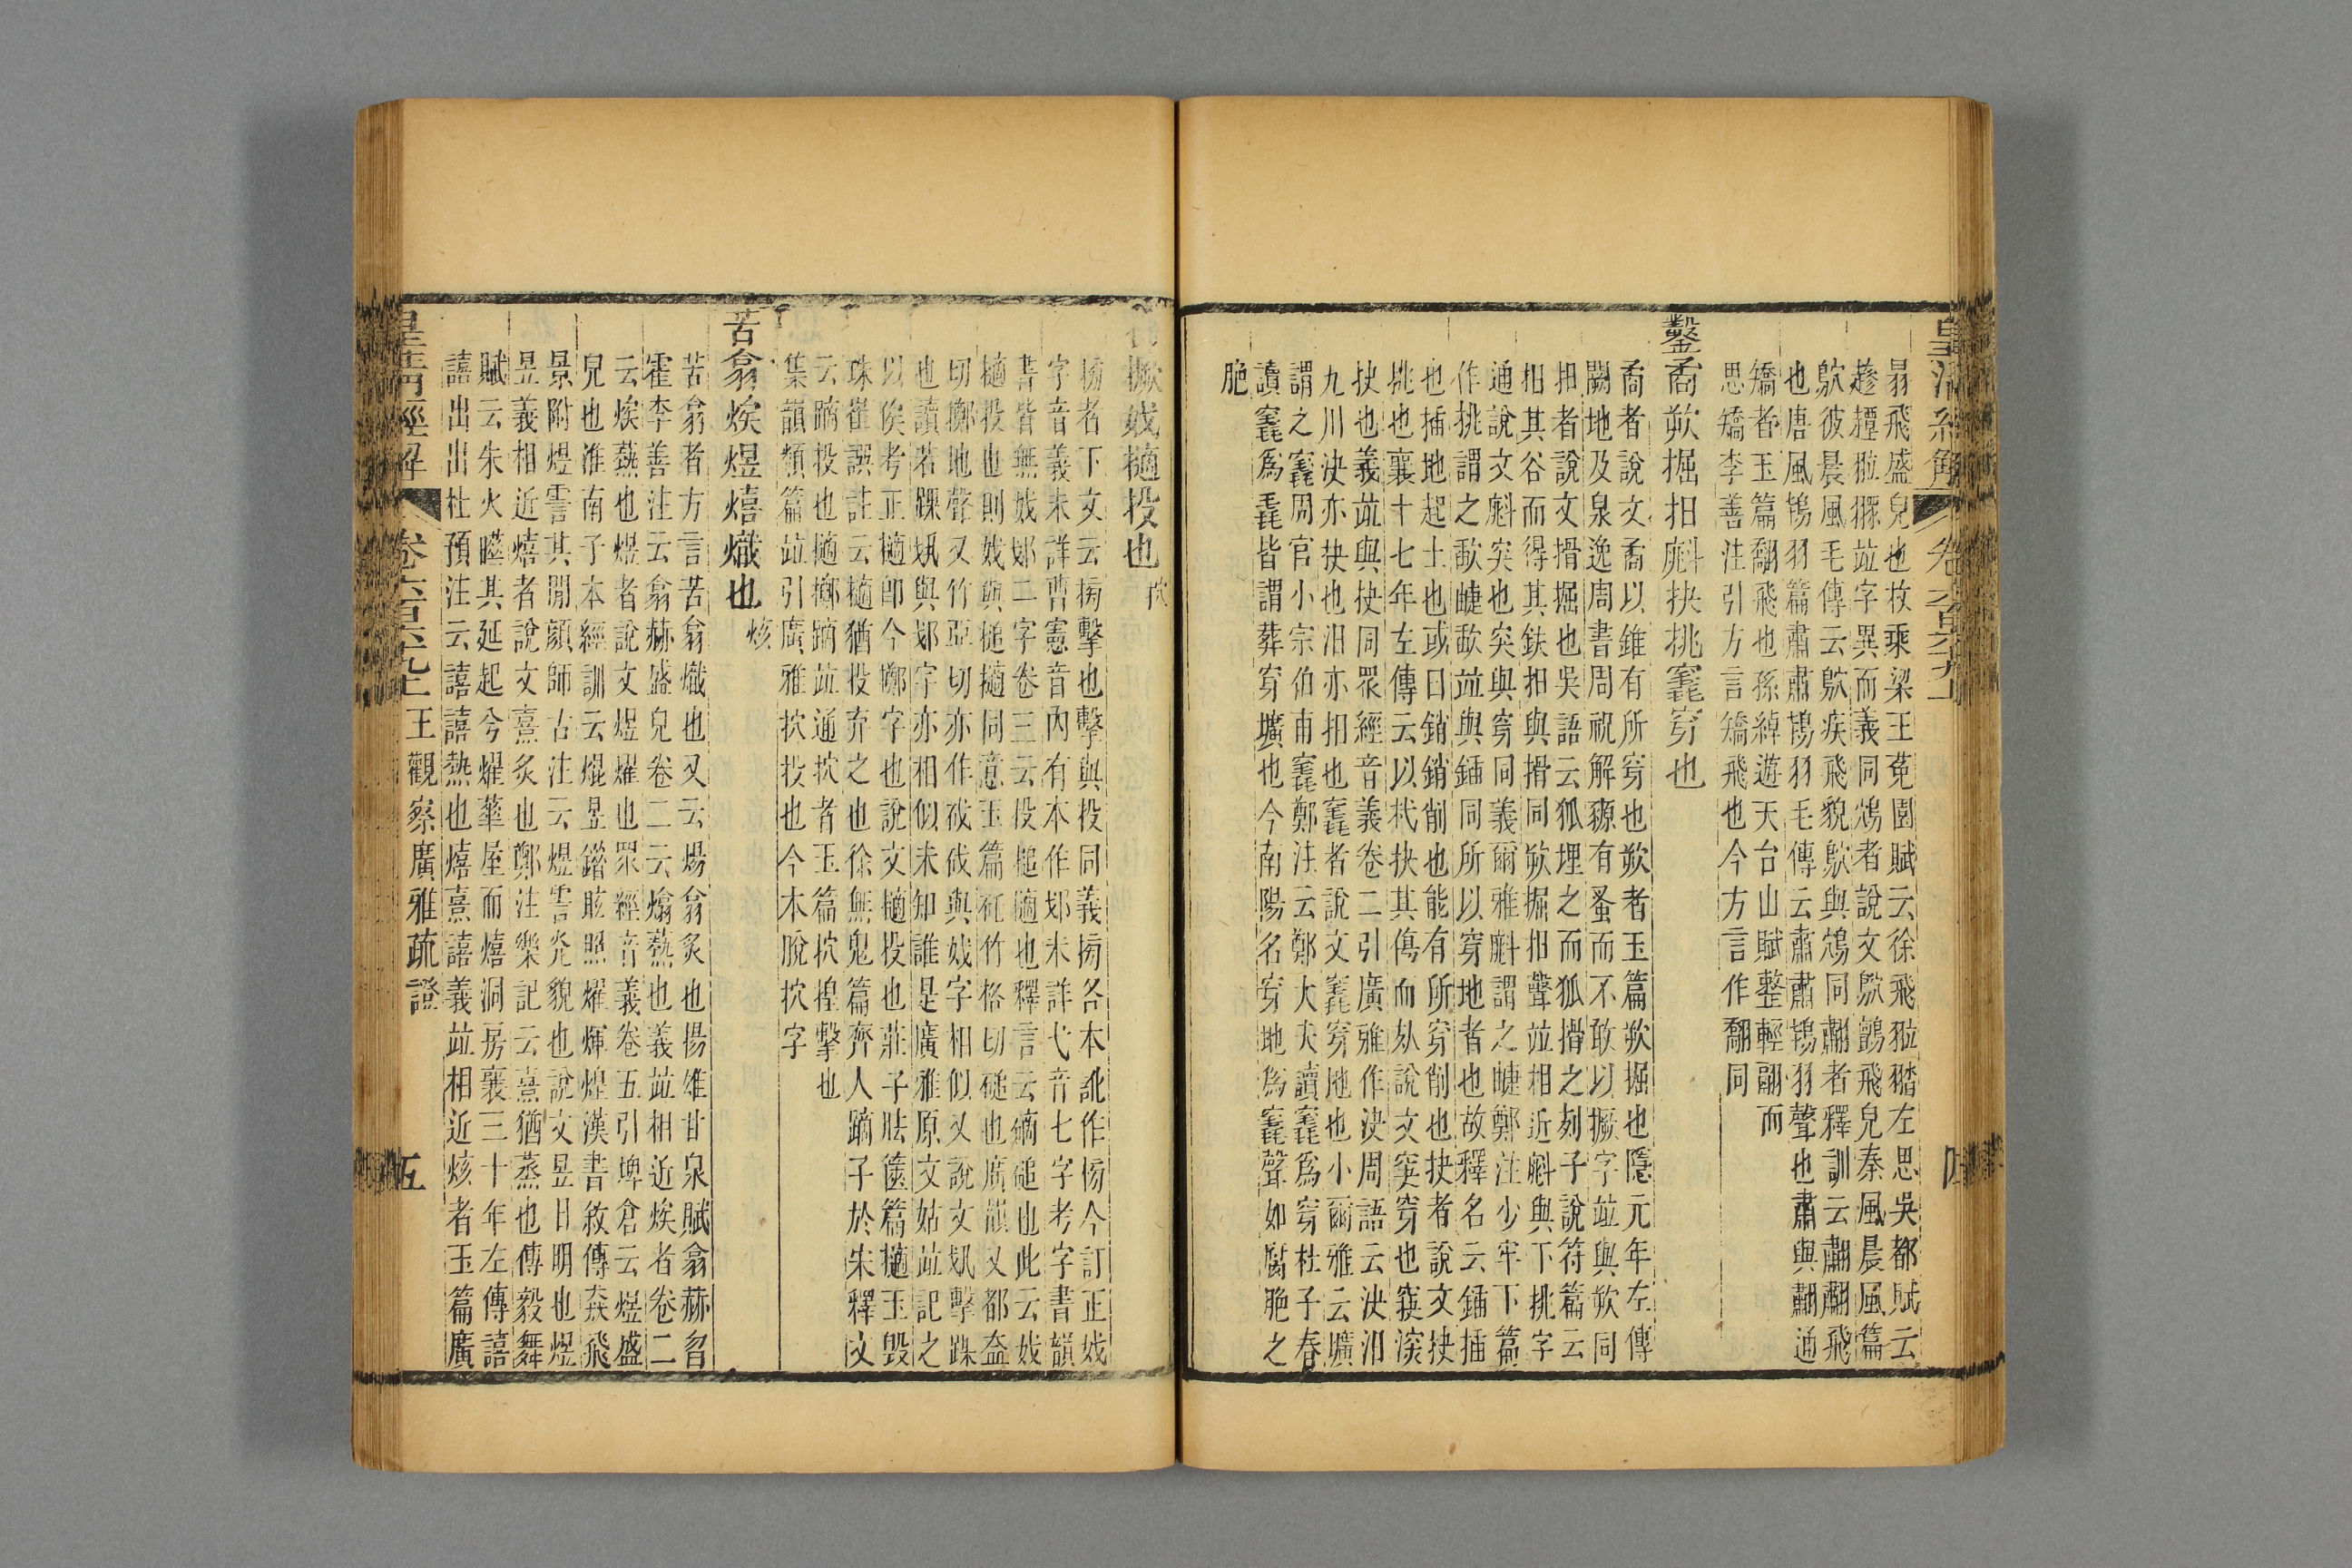 皇清經解
卷六百六十九上
翾飛盛皃也枚乘梁王菟園賦云徐飛翋㹺左思吳都賦云
趁趯翋㹺竝字異而義同鴥者說文鴥鸇飛皃秦風晨風篇
鴥彼晨風毛傳云鴥疾飛貌鴥與鴪同翽者釋訓云翽翽飛
也唐風鴇羽篇肅肅鴇羽毛傳云肅肅鴇羽聲也肅與翽通
矯者玉篇翿飛也孫綽遊天台山賦整輕翮而
思矯李善注引方言矯飛也今方言作翿同
鑿矞欮掘抇㪷抉挑竁穿也
矞者說文矞以錐有所穿也欮者玉篇欮掘也隱元年左傳
闕地及泉逸周書周祝解豲有蚤而不敢以撅字竝與欮同
抇者說文搰掘也吳語云狐埋之而狐搰之刻子說符篇云
抇其谷而得其鈇抇與搰同欮掘抇聲竝相近㪷與下挑字
通說文㪷突也突與穿同義爾雅㪷謂之疀鄭注少牢下篇
作挑謂之歃疀歃竝與鍤同所以穿地者也故釋名云鍤插
也插地起土也或曰銷銷削也能有所穿削也抉者說文抉
挑也襄十七年左傳云以杙抉其傷而夬說文突穿也竅深
抉也義竝與抉同眾經音義卷二引廣雅作決周語云決汨
九川決亦抉也汨亦抇也竁者說文竁穿地也小爾雅云壙
謂之竁周官小宗伯甫竁鄭注云鄭大夫讀竁爲穿杜子春
讀竁爲毳皆謂葬穿壙也今南陽名穿地爲竁聲如腐脆之
脆
四
撅妭擿投也
㧒
㨍者下文云㨍擊也擊與投同義㨍各本訛作㨍今訂正妭
字音義未詳曹憲音內有本作㚴未詳弋音七字考字書韻
書皆無妭㚴二字卷三云投搥擿也釋言云㨍磓也此云妭
擿投也則妭與搥擿同意玉篇㧊竹格切磓也廣韻又都盍
切擲地聲又竹亞切亦作䂨䂨與妭字相似又說文㧖擊踝
也讀若踝㧖與㚴字亦相似未知誰是廣雅原文姑竝記之
以俟考正擿卽今擲字也說文擿投也莊子胠篋篇擿玉毁
珠崔譔註云擿猶投弃之也徐無鬼篇齊人蹢子於宋釋文
云蹢投也擿擲蹢竝通㧒者玉篇㧒揘擊也
集韻類篇竝引廣雅㧒投也今本脫㧒字
苦翕煔煜熺熾也
烗
苦翕者方言苦翕熾也又云煬翕炙也揚雄甘泉賦翕赫曶
霍李善注云翕赫盛皃卷二云熻爇也義竝相近煔者卷二
云煔爇也煜者說文煜燿也眾經音義卷五引埤倉云煜盛
皃也淮南子本經訓云焜昱錯眩照燿煇煌漢書敘傳猋飛
景附煜霅其閒顔師古注云煜霅光貌也說文昱日明也煜
昱義相近熺者說文熹炙也鄭注樂記云熹猶蒸也傅毅舞
賦云朱火曄其延起兮燿華屋而熺洞房襄三十年左傳譆
譆出出杜預注云譆譆熱也熺熹譆義竝相近烗者玉篇廣
皇清經解
卷六百六十九上
王觀察廣雅疏證
五